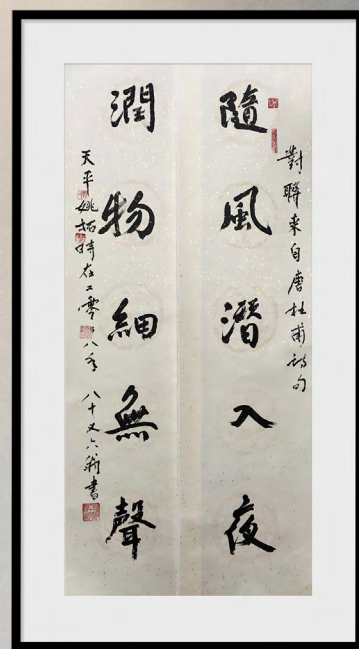 對聯来自唐杜甫詩句
隨風潛入夜
潤物細無聲
天平姚時在二零八年八十又六翁書